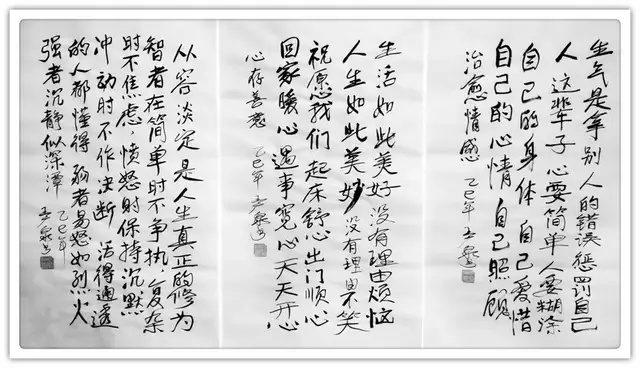 生气是拿别人的错误惩罚自己
人 这辈子 心要简单 人要糊涂
自己的身体 自己爱惜
自己的心情 自己照顾
治愈情感 乙巳年
生活如此美好 没有理由烦恼
人生如此美妙 没有理由不笑
祝愿我们 起床舒心 出门顺心
回家暖心 遇事宽心 天天开心
心存善意 乙巳年
从容淡定是人生真正的修为
智者在简单时不争执 复杂
时不焦虑，愤怒时保持沉默
冲动时不作决断 活得通透
的人都懂得 者易怒如烈火
强者沉静似深潭 乙巳年